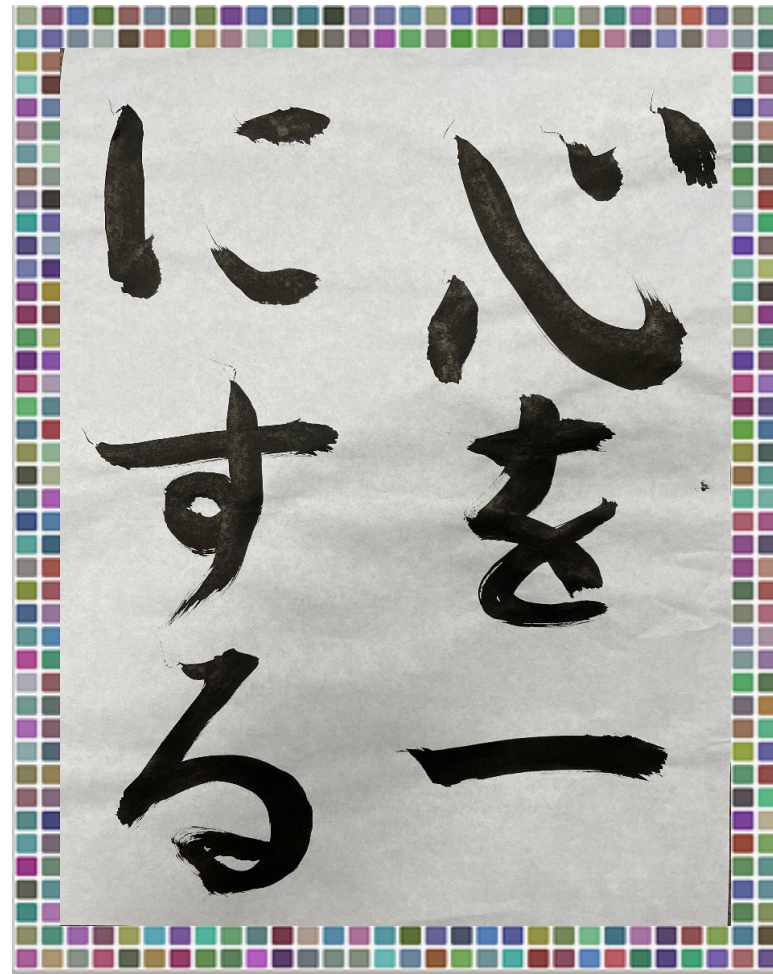 心を一
にする